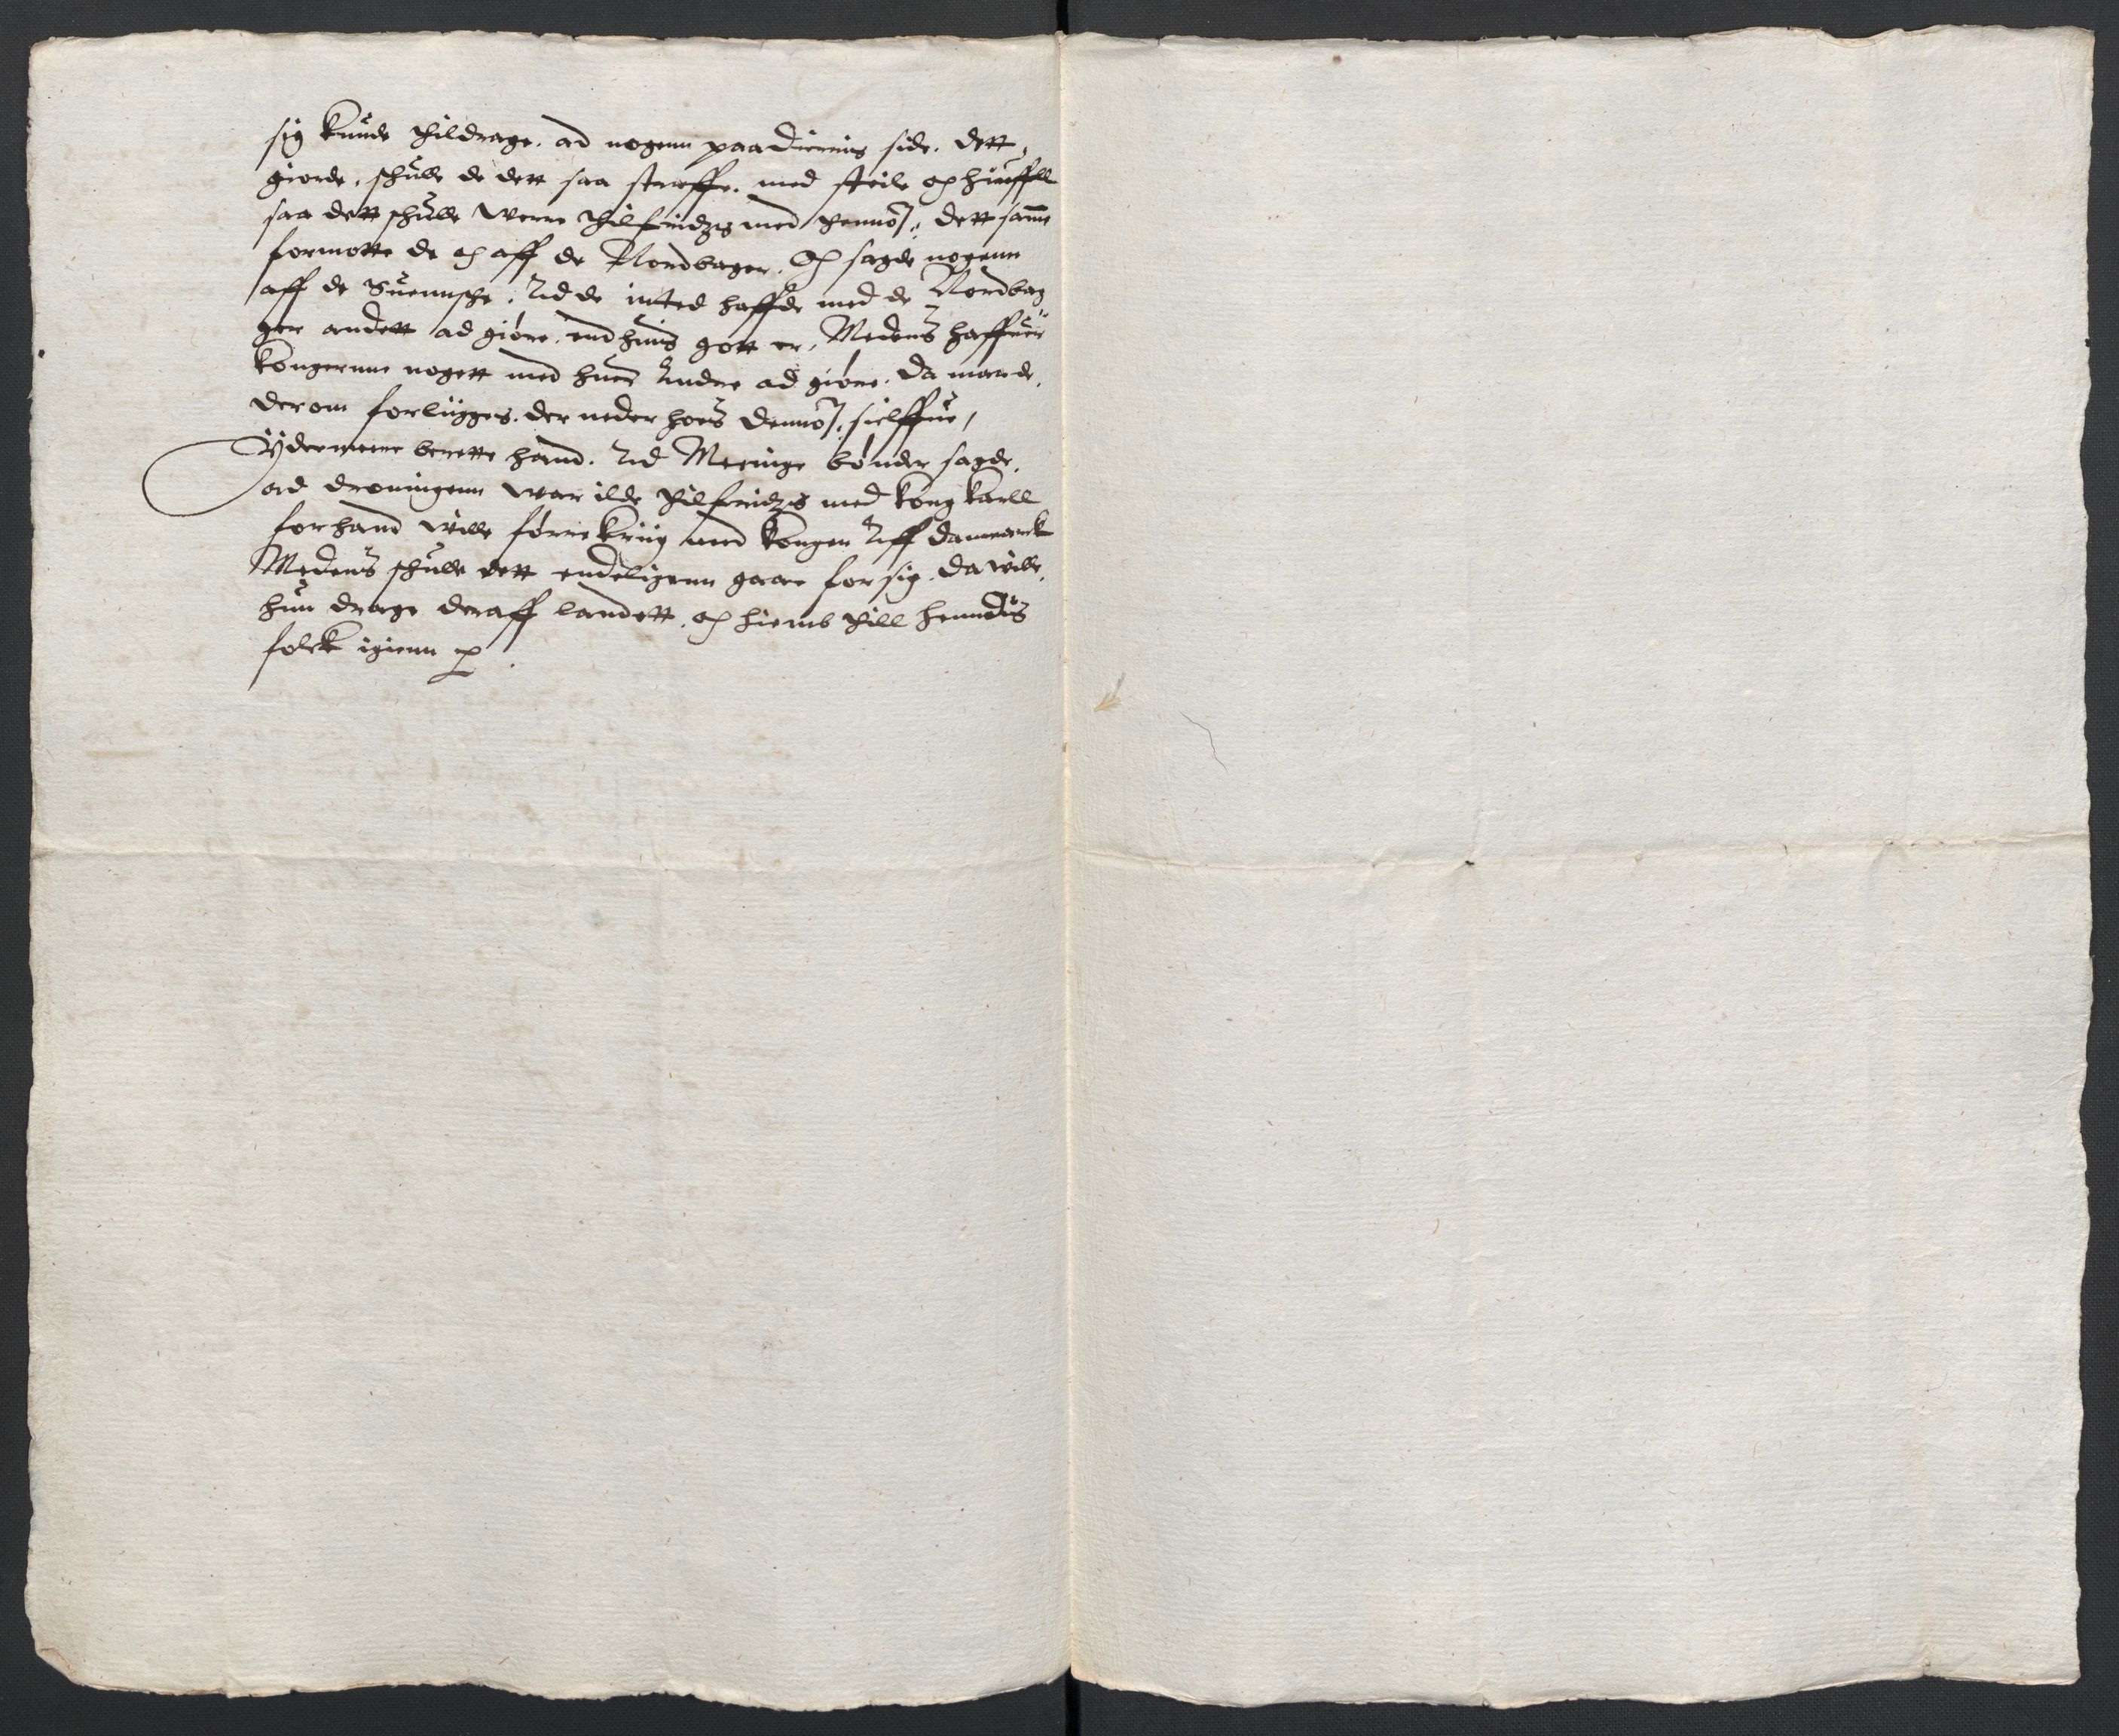 sig kunde tildrage. ad nogenn paa dieris side. dett
giorde, schulle de dett saa straffe. med steile och hiuffll
saa dett schulle were tilfridzs med dennom, dett samme
formotte de och aff de Nordbager. Och sagde nogenn
aff de Suensche. Ad de inted haffde med de Nordbag
ger andett ad giøre. end huis gott er, Medens haffuer
kongernne nogett med huer Andre ad giøre. da maa de,
derom forligges. der neder hoes dennom sielffue,
Ydermere berette hand. Ad Meringe bønder sagde,
ad droningenn war ilde tilfridzs med kong karll
for hand wille førre kriig med kongen Aff danmarck
Medens schulle dett endeligenn gaae for sig. da wille,
hun drage deraff landett. och hiemb till hendis
folck igienn